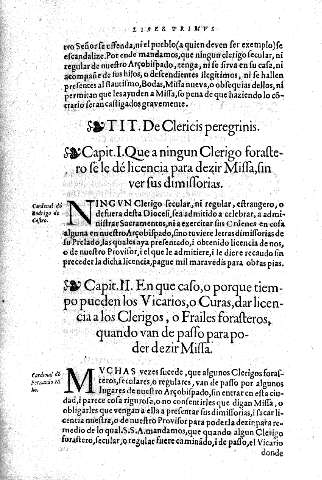 LIBER PRIMVS
tro Señor se offenda, ni el pueblo (a quien deven ser exemplo) se
escandalize. Por ende mandamos, que ningun clerigo secular, ni
regular de nuestro Arçobispado, tenga, ni se sirva en su casa, ni
acompañe de sus hijos, o descendientes ilegitimos, ni se hallen
presentes al Bautismo, Bodas, Missa nueva, o obsequias dellos, ni
permitan que les ayuden a Missa, so pena de que haziendo lo cõ-
trario seran castigados gravemente.
TIT. De Clericis peregrinis.
Capit. I. Que a ningun Clerigo foraste-
ro se le dé licencia para dezir Missa, sin
ver sus dimissorias.
Cardenal dõ
Rodrigo de
Castro.
NINGVN Clerigo secular, ni regular, estrangero, o
de fuera desta Diocesi, sea admitido a celebrar, a admi-
nistrar Sacramentos, ni a exercitar sus Ordenes en cosa
alguna en nuestro Arçobispado, sino tuviere letras dimissorias de
su Prelado, las quales aya presentado, i obtenido licencia de nos,
o de nuestro Provisor, i el que le admitiere, i le diere recaudo sin
preceder la dicha licencia, pague mil maravedis para obras pias.
Capit. II. En que caso, o porque tiem-
po pueden los Vicarios, o Curas, dar licen-
cia a los Clerigos, o Frailes forasteros,
quando van de passo para po-
der dezir Missa.
Cardenal dõ
Fernando Ni
ño.
MVCHAS vezes sucede, que algunos Clerigos foras-
teros, seculares, o regulares, van de passo por algunos
lugares de nuestro Arçobispado, sin entrar en esta ciu-
dad, i parece cosa rigurosa, o no consentirles que digan Missa, o
obligarles que vengan a ella a presentar sus dimissorias, i sacar li-
cencia nuestra, o de nuestro Provisor para poderla dezir: para re-
medio de lo qual, S.S.A. mandamos, que quando algun Clerigo
forastero, secular, o regular fuere caminãdo, i de passo, el Vicario
donde